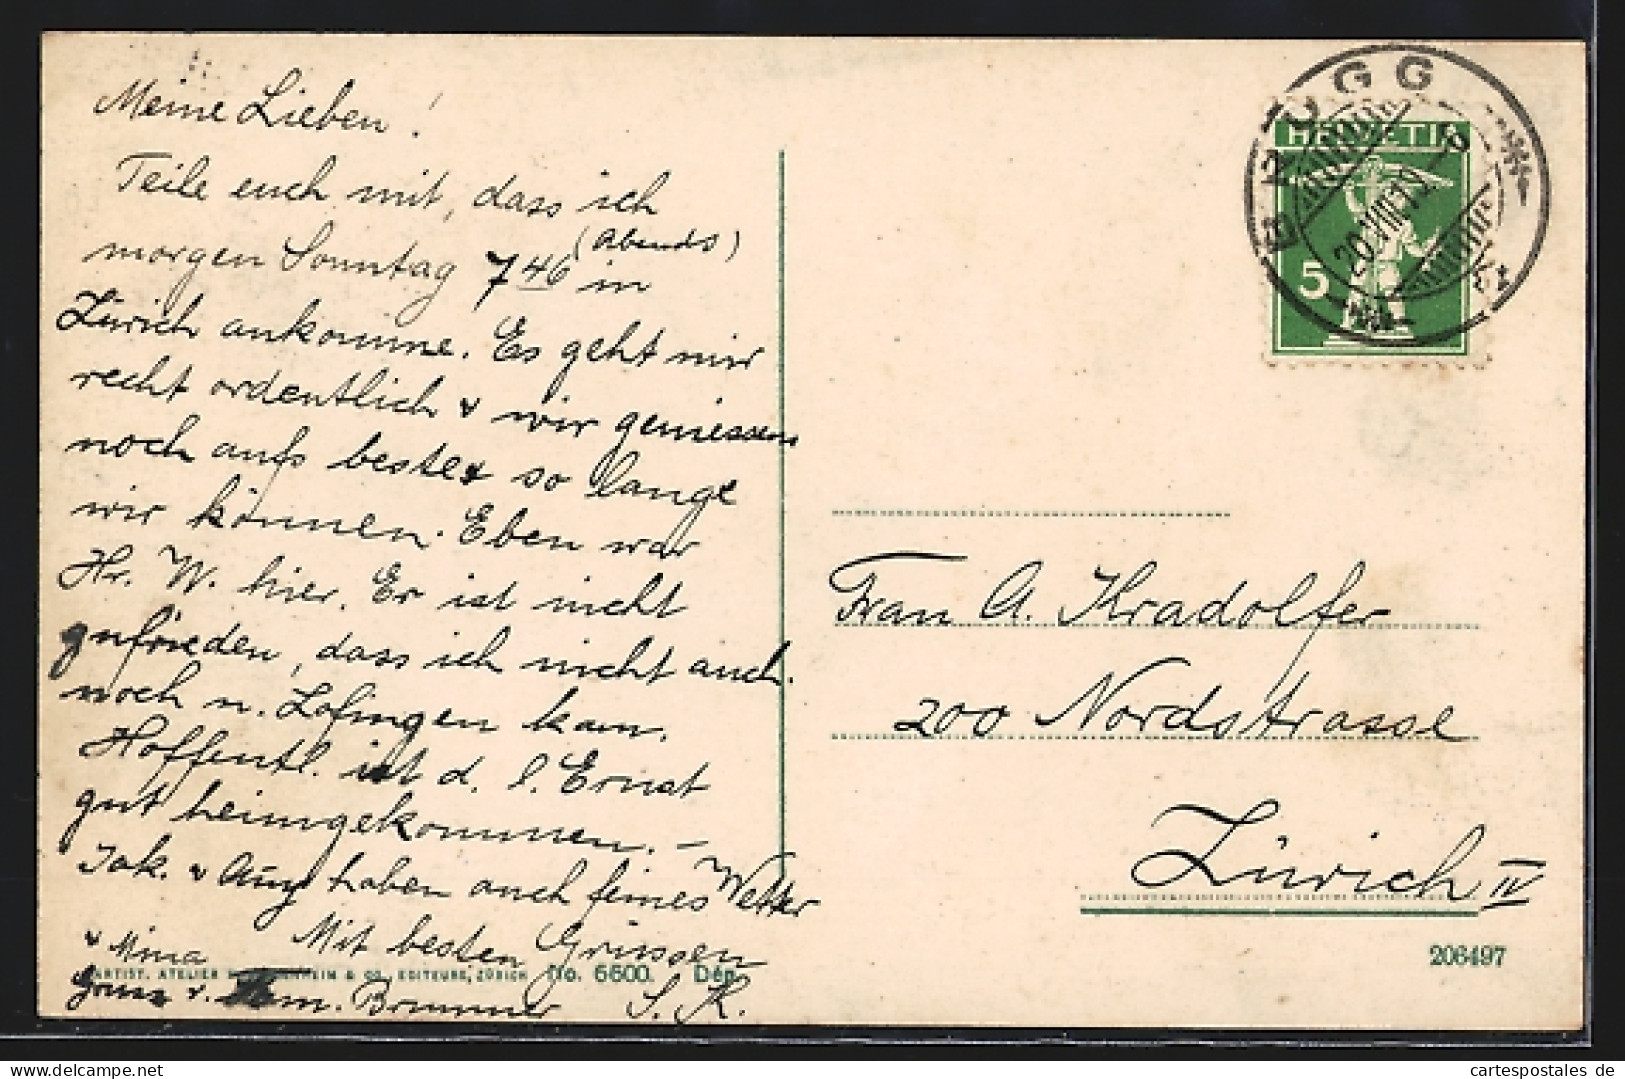 Meine Lieben!
Teile euch mit, dass ich
morgen Sonntag 7 46 (abends) in
Zürich ankomme. Es geht mir
recht ordentlich & wir geniessen
noch aufs beste so lange
wir können. Eben war
Hr. W. hier. Er ist nicht
zufrieden, dass ich nicht auch
noch n. Zofingen kam.
Hoffentl. ist d. l. Ernst
gut heimgekommen. –
Jak. & Aug. haben auch feines Wetter
& Mina Mit besten Grüssen
Gruss v. Brunner S. K.
ARTIST. ATELIER & CO. EDITEURS, ZÜRICH No. 6600. Dép.
BRUGG
HELVETIA
5
Frau A. Kradolfer
200 Nordstrasse
Zürich IV
206497
cartespostales de